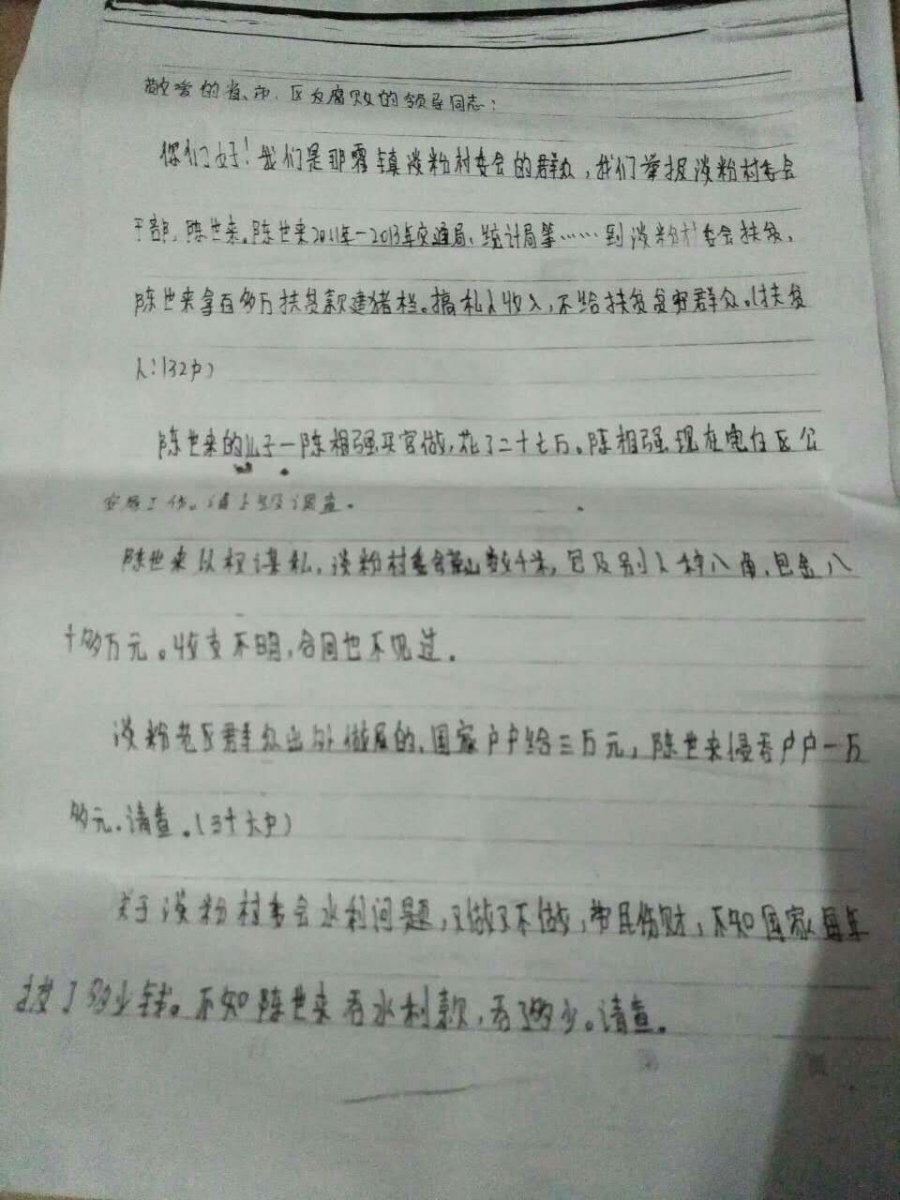 敬爱的省、市、区反腐败的领导同志：
你们好！我们是那霍镇淡粉村委会的群众，我们举报淡粉村委会
干部，陈世来。陈世来2011年一2013年交通局、统计局等……到淡粉村委会扶贫，
陈世来拿百多万扶贫款建猪栏。搞私人收入，不给扶贫贫穷群众。（扶贫
人：132户）
陈世来的儿子一陈相强买官做，花了二十七万。陈相强现在电白区公
安局工作。请上级调查。
陈世来以权谋私，淡粉村委会荒山数千米，包及别人种八角，包金八
十多万元。收支不明，合同也不见过。
淡粉老区群众出外做屋的，国家户户给三万元，陈世来侵吞户户一万
多元。请查。（3十六户）
关于淡粉村委会水利问题，又做又不做，劳民伤财，不知国家每年
拨了多少钱。不知陈世来吞水利款，吞了多少。请查。
第 页